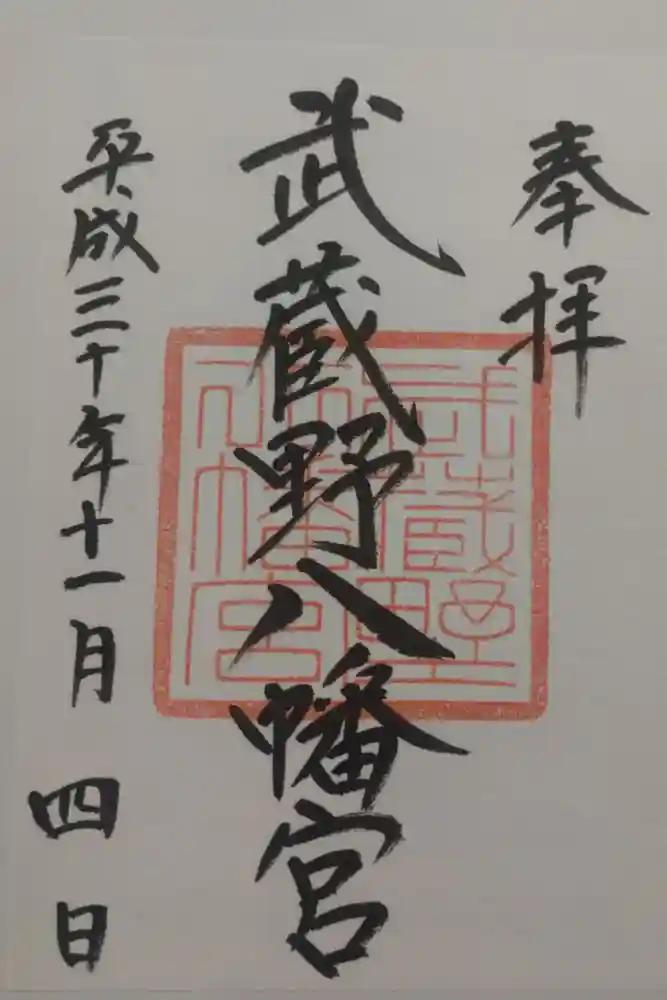 奉拝
武蔵野八幡宮
武蔵野八幡宮
平成三十年十一月四日